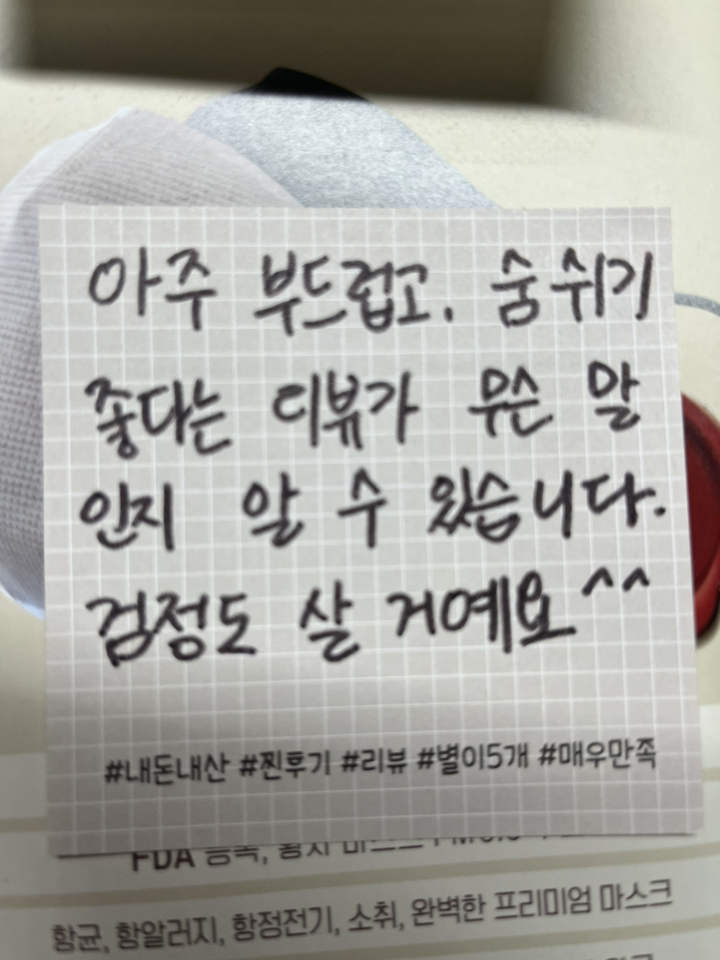 아주 부드럽고. 숨쉬기
좋다는 리뷰가 무슨 말
인지 알 수 있습니다.
검정도 살 거예요^^
#내돈내산 #찐후기 #리뷰 #별이5개 #매우만족
FDA 등록, 황사
항균, 항알러지, 항정전기, 소취, 완벽한 프리미엄 마스크